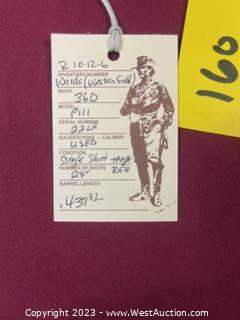 R 10-12-6
INVENTORY NUMBER
Wards (Western Field)
MAKE
36D
MODEL
P111
SERIAL NUMBER
22LR
GAUGE/CHOKE - CALIBER
USED
CONDITION
Single Shot
NUMBER OF SHOTS
24"
BARREL LENGTH
$
160
Copyright 2023 - WestAuction.com